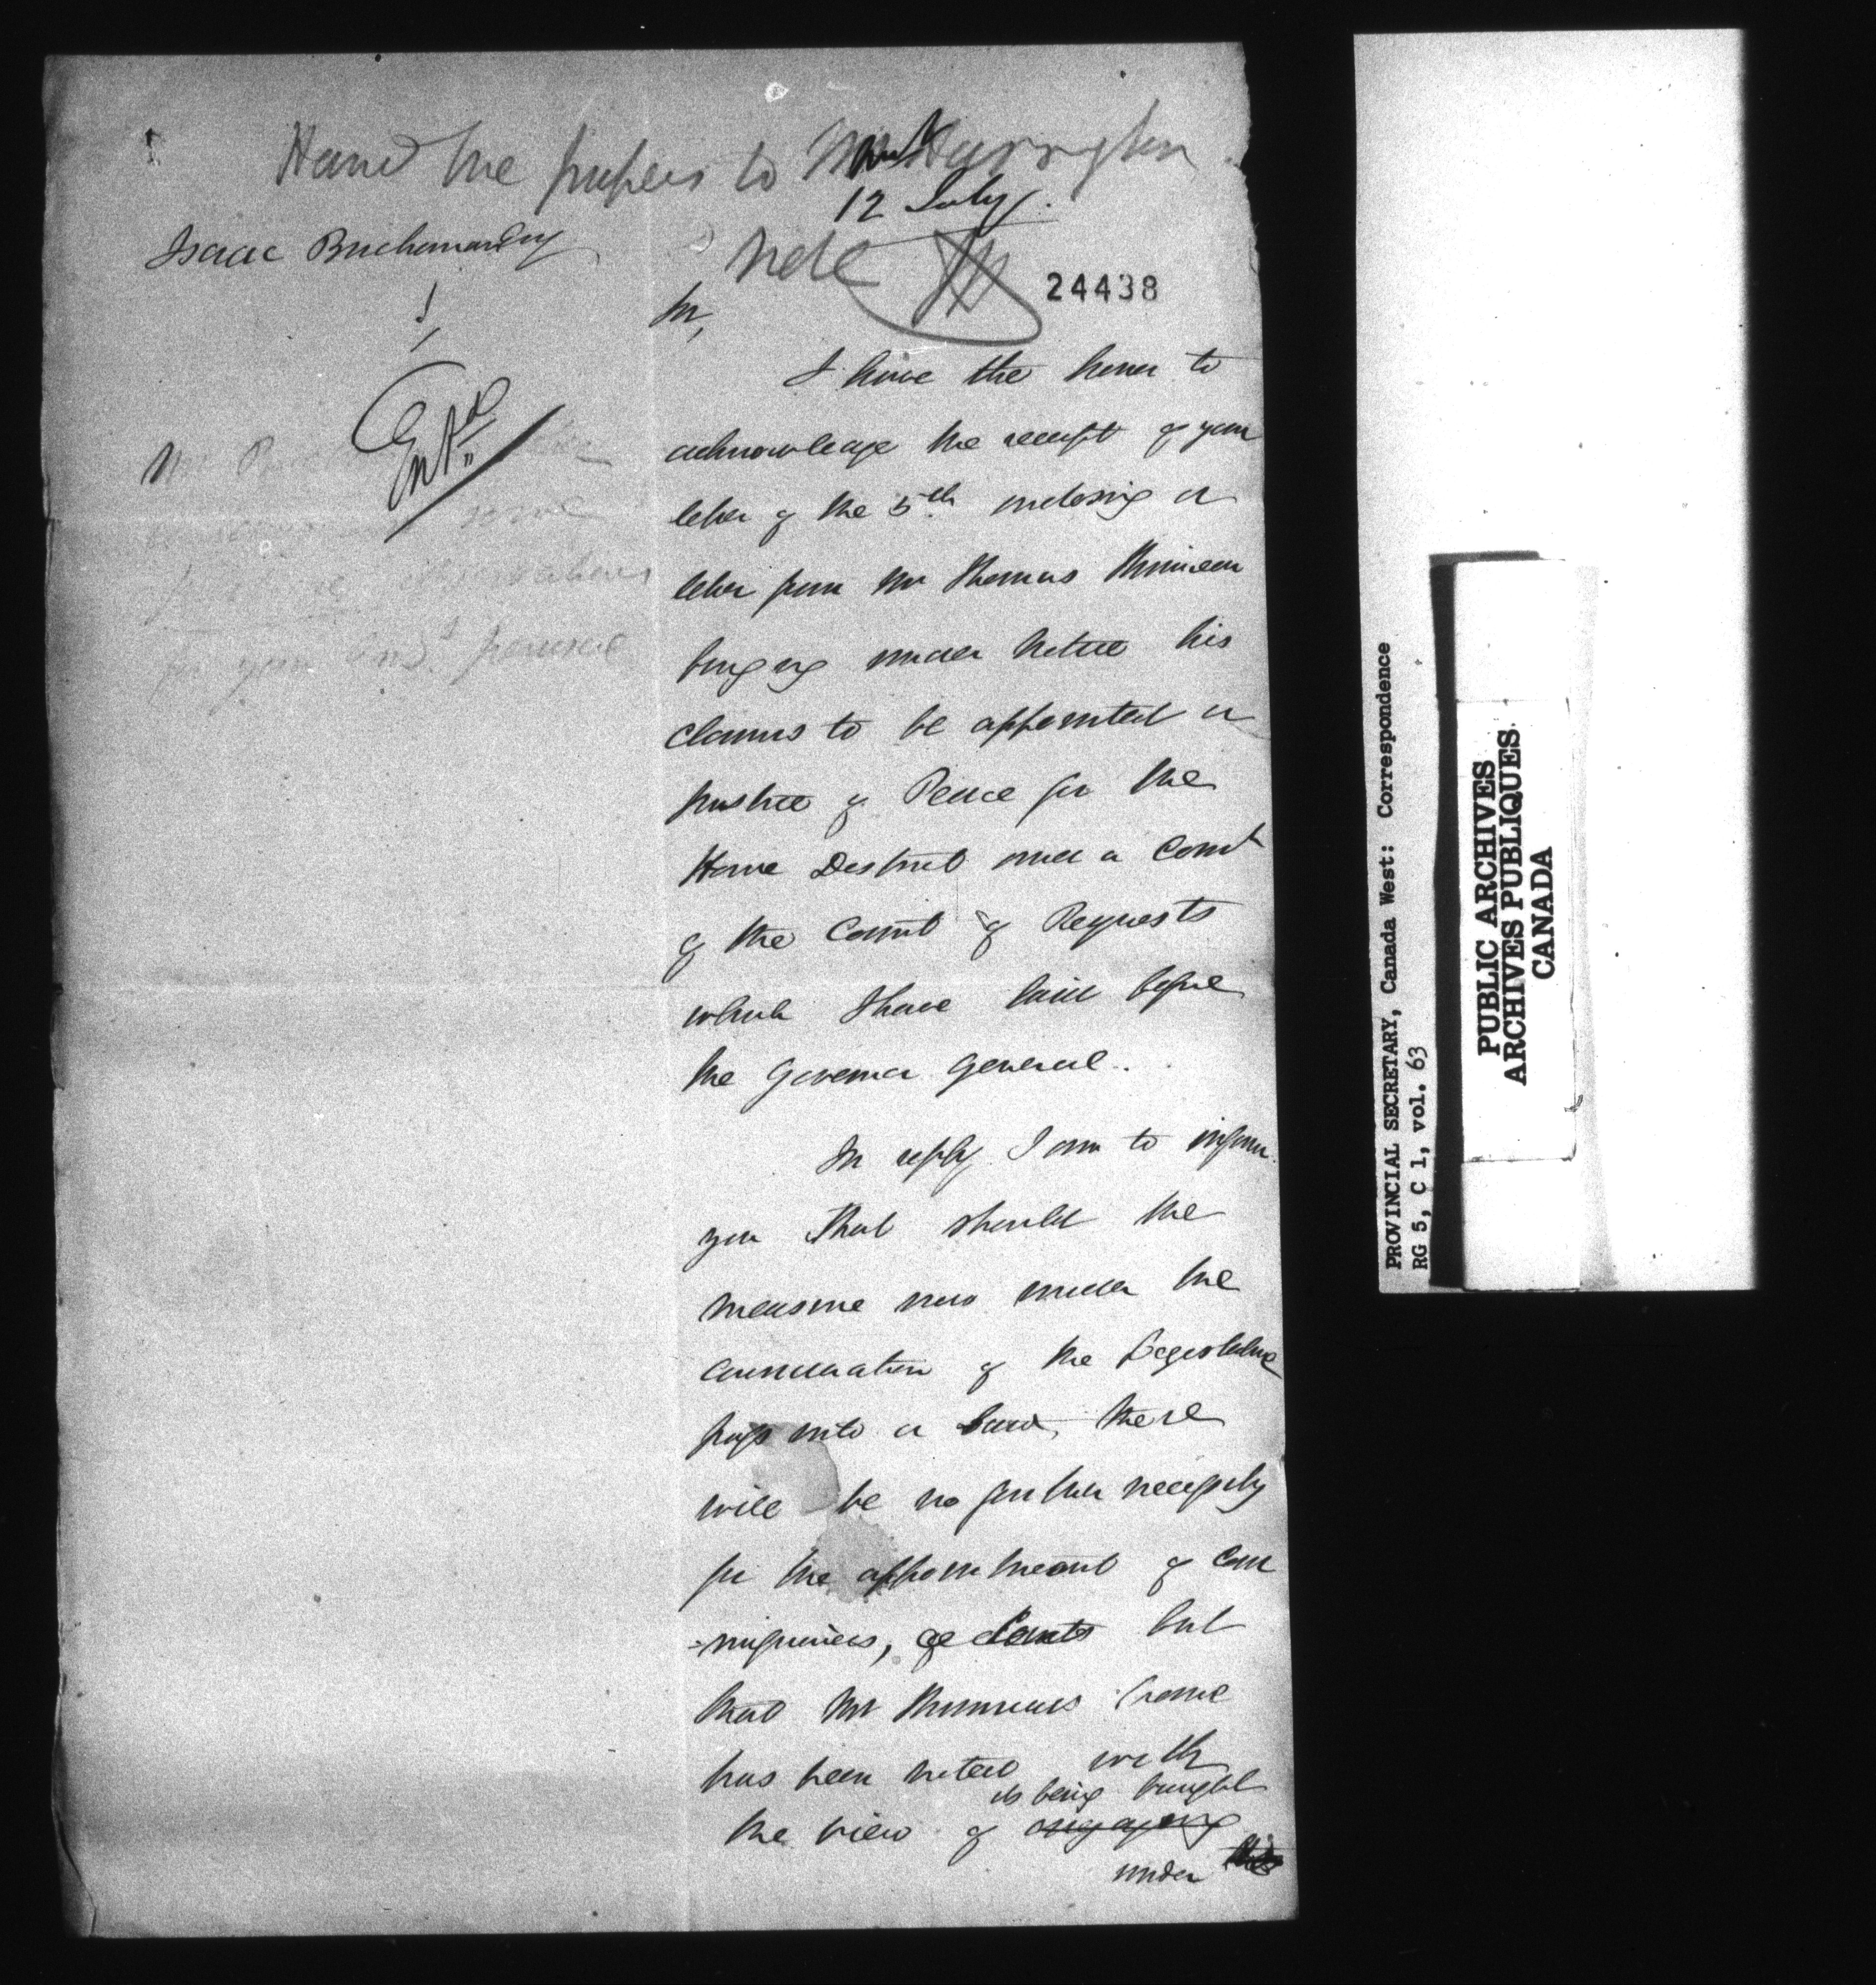 Hand the papers to Mr Harrington
12 July.
Isaac Buchanan Esq
Note
24438
Sir,
Entd
I have the honor to
acknowledge the receipt of your
letter of the 5th enclosing a
letter from Mr Thomas
bringing under notice his
claims to be appointed a
Justice of Peace for the
Home District and a Comr
of the Court of Requests
which I have laid before
the Governor General.
In reply I am to inform
you that should the
measure now under the
consideration of the Legislature
pass into a Law, there
will be no further necessity
for the appointment of Com
-missioners, of Courts but
that Mr name
has been noted with
its being brought
the view of engaging
under this
for your perusal
PROVINCIAL SECRETARY, Canada West: Correspondence
RG 5, C 1, vol. 63
PUBLIC ARCHIVES
ARCHIVES PUBLIQUES
CANADA